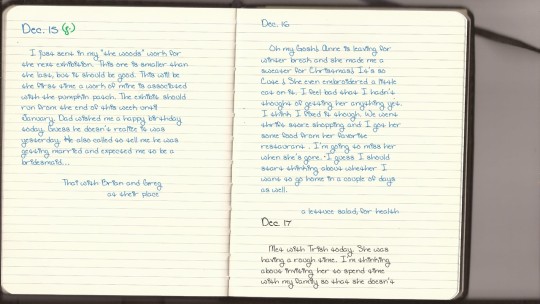 Dec. 15
I just sent in my "the woods" work for
the next exhibition. This one is smaller than
the last, but it should be good. This will be
the first time a work of mine is associated
with the pumpkin patch. The exhibit should
run from the end of this week until
January. Dad wished me a happy birthday
today. Guess he doesn't realize it was
yesterday. He also called to tell me he was
getting married and expected me to be a
bridesmaid...
That with Brian and Greg
at their place
Dec. 16
Oh my Gosh! Anne is leaving for
winter break and she made me a
sweater for Christmas! It's so
cute! She even embroidered a little
cat on it. I feel bad that I hadn't
thought of getting her anything yet.
I think I fixed it though. We went
thrift store shopping and I got her
some food from her favorite
restaurant. I'm going to miss her
when she's gone. I guess I should
start thinking about whether I
want to go home in a couple of days
as well.
a lettuce salad, for health
Dec. 17
Met with Trish today. She was
having a rough time. I'm thinking
about inviting her to spend time
with my family so that she doesn't